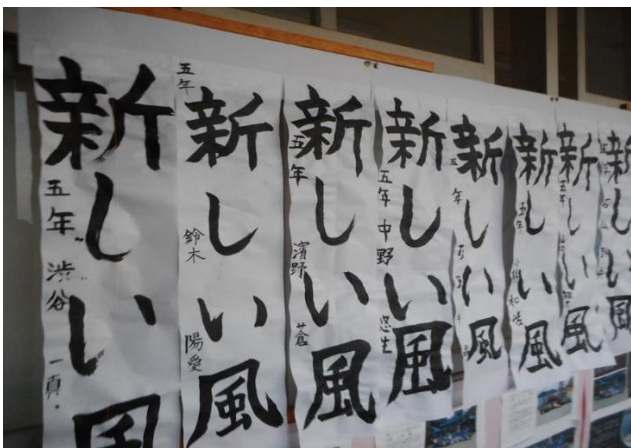 新しい風
五年 渋谷 一真
新しい風
五年 鈴木 陽愛
新しい風
五年 濱野 蒼
新しい風
五年 中野 悠生
新しい風
五年
新しい風
五年
新しい風
五年
新しい風